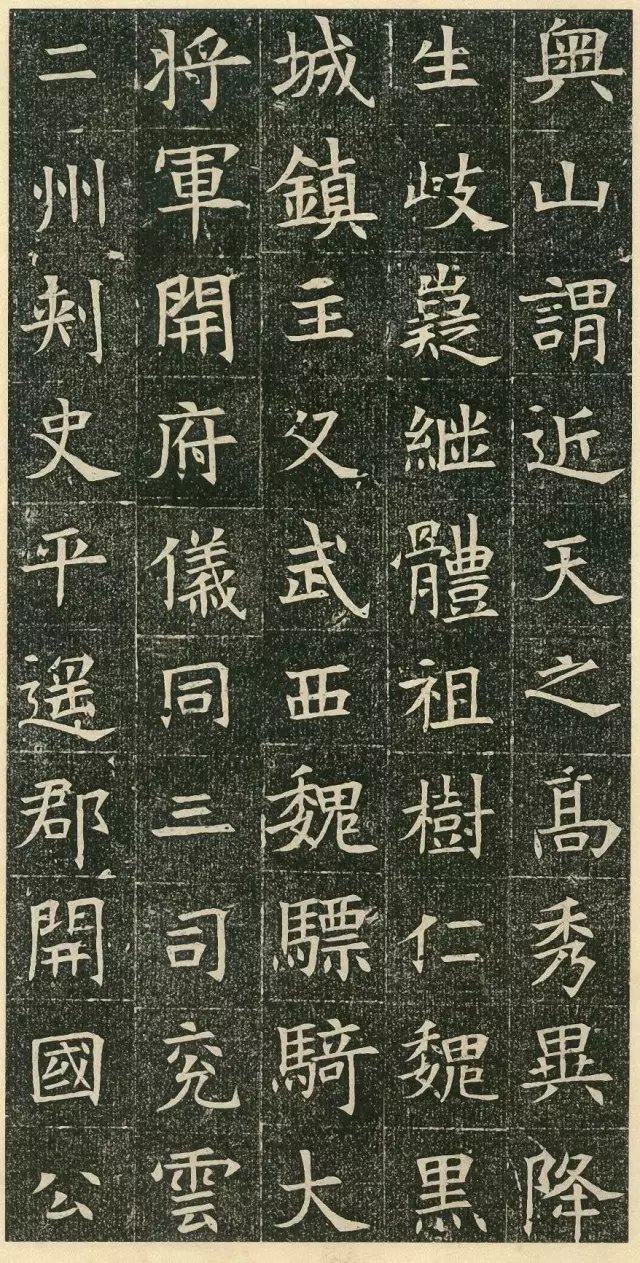 奧山謂近天之高秀異降
生岐嶷繼體祖樹仁魏黑
城鎮主父武西魏驃騎大
將軍開府儀同三司兗雲
二州刺史平遙郡開國公